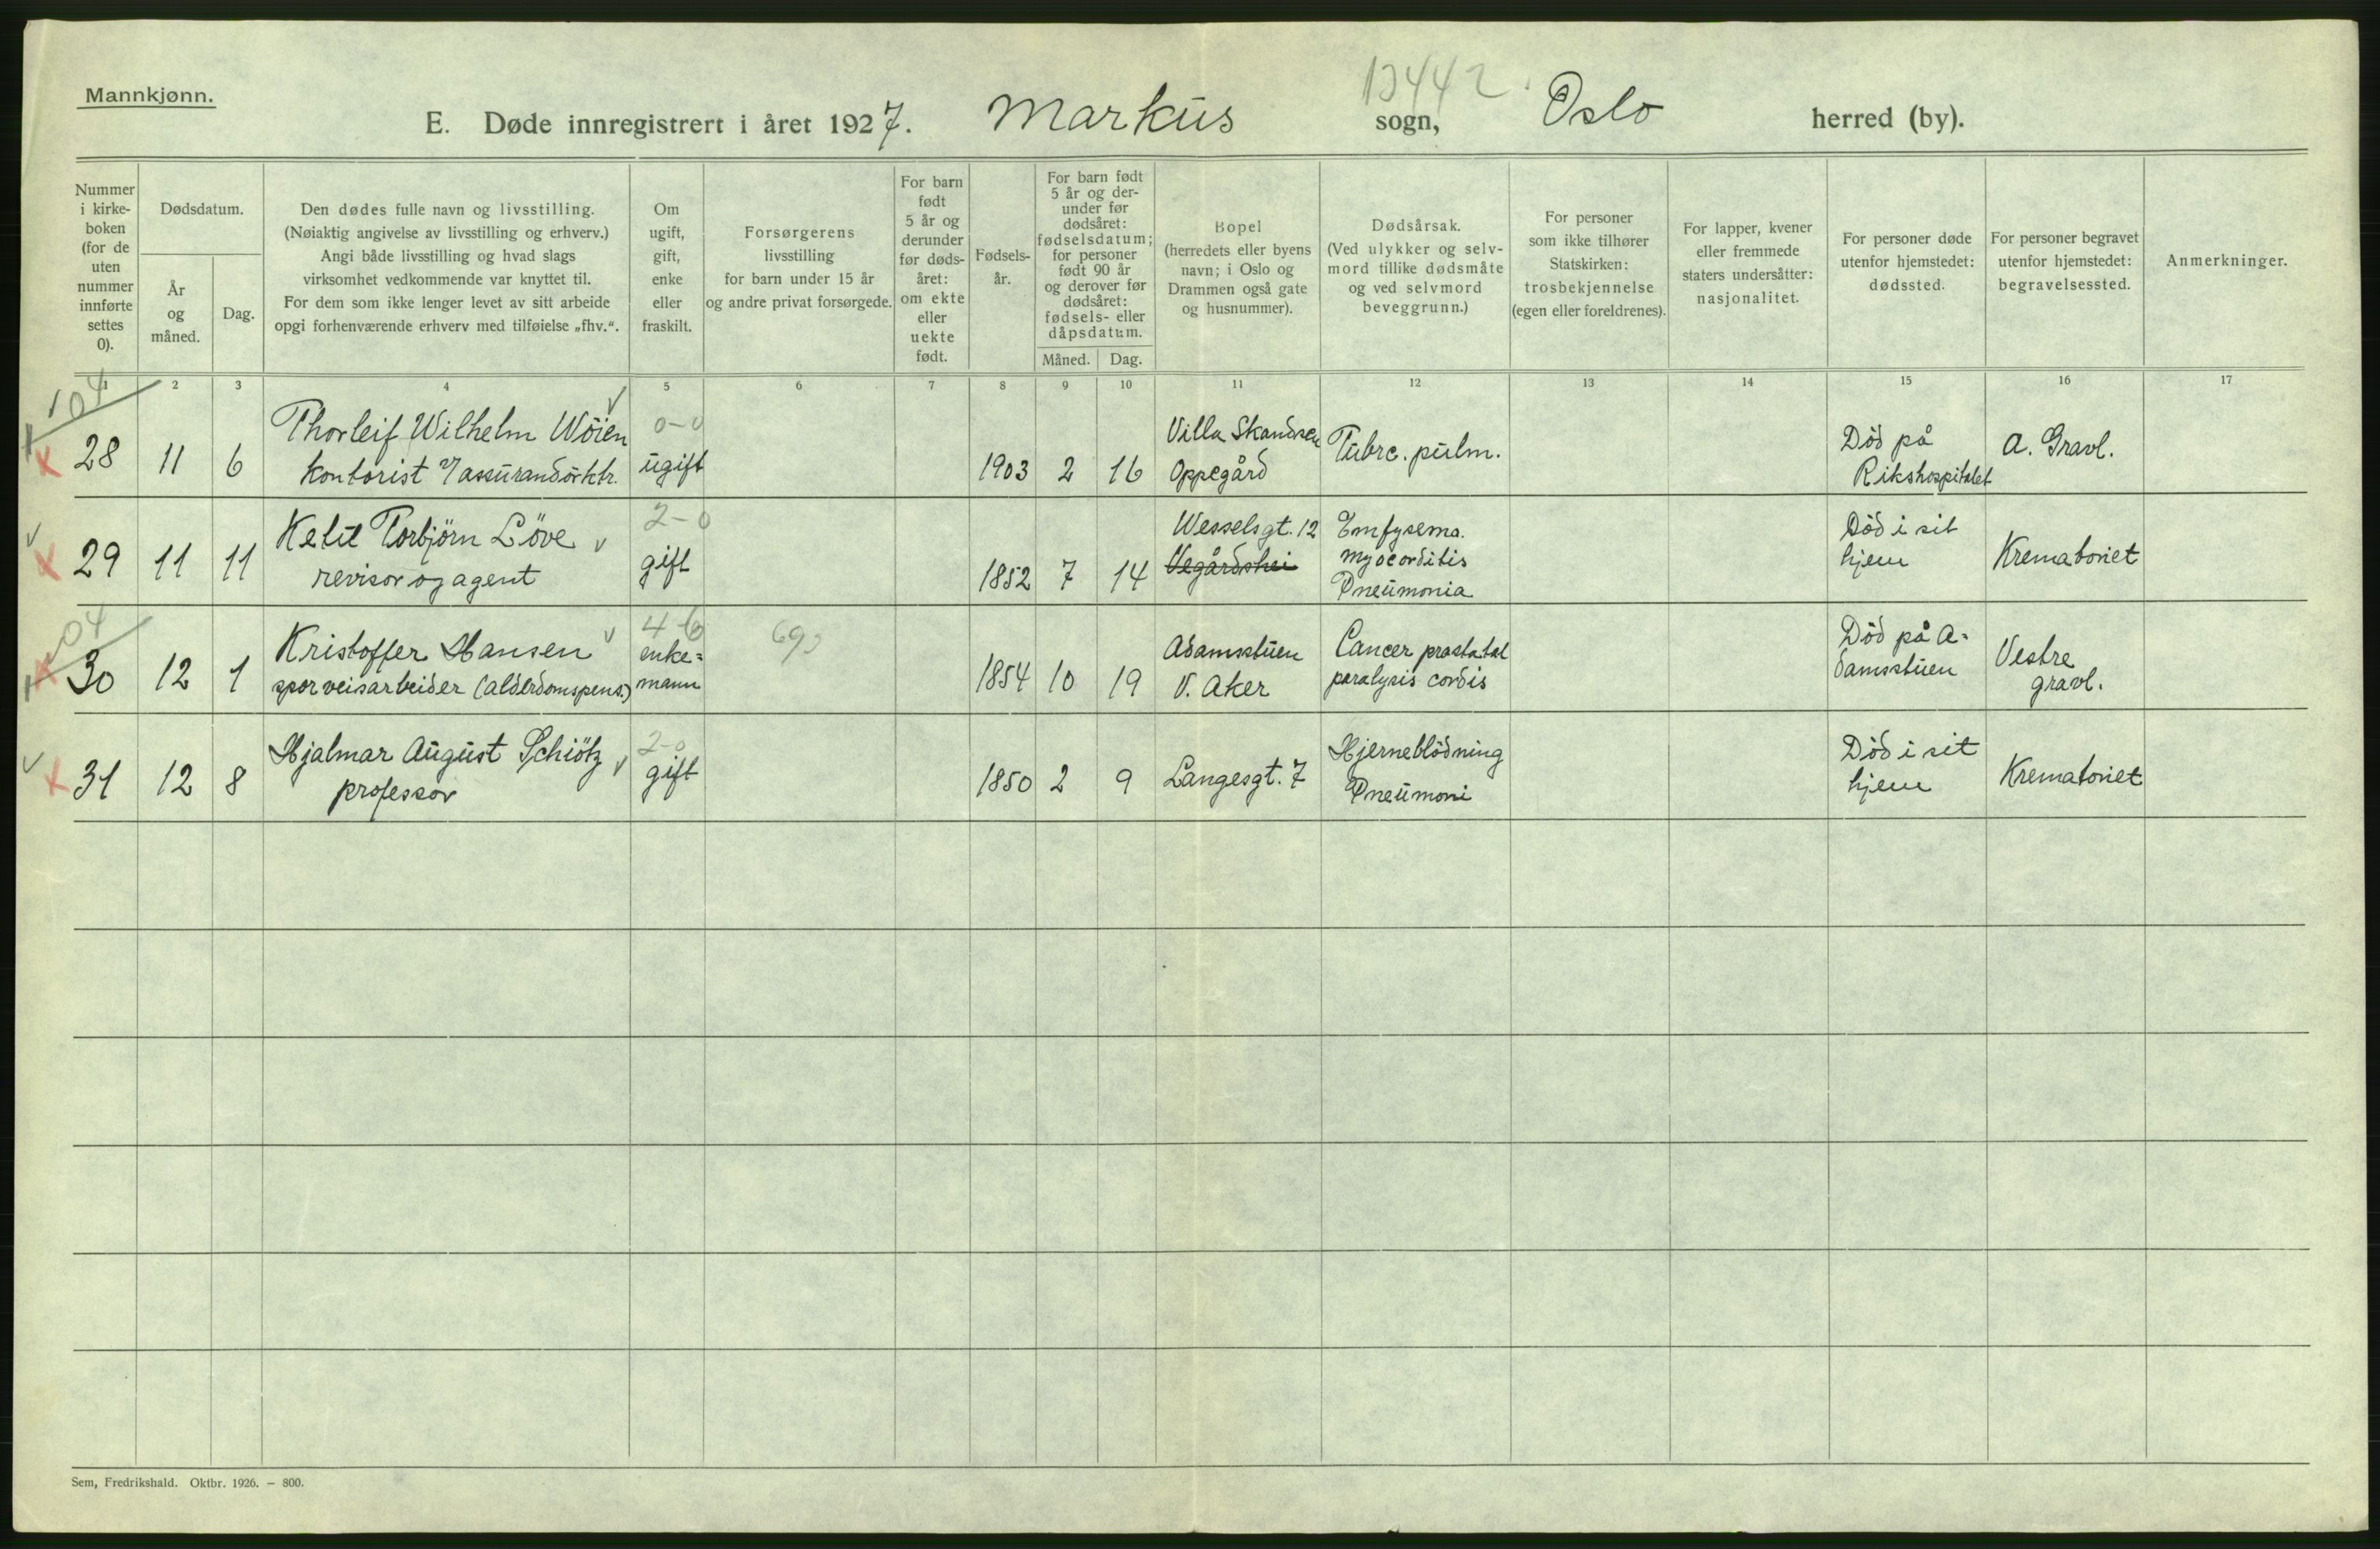 Mannkjønn.
13442.
E. Døde innregistrert i året 1927. Markus sogn, Oslo herred (by).
Nummer i kirke-boken (for de uten nummer innførte settes 0).
Dødsdatum.
År og måned.
Dag.
Den dødes fulle navn og livsstilling.
(Nøiaktig angivelse av livsstilling og erhverv.)
Angi både livsstilling og hvad slags
virksomhet vedkommende var knyttet til.
For dem som ikke lenger levet av sitt arbeide
opgi forhenværende erhverv med tilføielse „fhv.“.
Om ugift, gift, enke eller fraskilt.
Forsørgerens
livsstilling
for barn under 15 år
og andre privat forsørgede.
For barn født 5 år og derunder før døds-året: om ekte eller uekte født.
Fødsels-år.
For barn født 5 år og der-under før dødsåret: fødselsdatum; for personer født 90 år og derover før dødsåret: fødsels- eller dåpsdatum.
Måned. Dag.
Bopel
(herredets eller byens
navn; i Oslo og
Drammen også gate
og husnummer).
Dødsårsak.
(Ved ulykker og selv-
mord tillike dødsmåte
og ved selvmord
beveggrunn.)
For personer
som ikke tilhører
Statskirken:
trosbekjennelse
(egen eller foreldrenes).
For lapper, kvener
eller fremmede
staters undersåtter:
nasjonalitet.
For personer døde
utenfor hjemstedet:
dødssted.
For personer begravet
utenfor hjemstedet:
begravelsessted.
Anmerkninger.
1 2 3 4 5 6 7 8 9 10 11 12 13 14 15 16 17
104
28 11 6 Thorleif Wilhelm Wöien
kontorist v/ assurandörktr.
0-0
ugift
1903 2 16
Villa Skandsen
Oppegård
Tubrc. pulm.
Död på
Rikshospitalet
A. Gravl.
29 11 11 Ketil Torbjörn Löve
revisor og agent
2-0
gift
1852 7 14
Wesselsgt. 12
Vegårdshei
Emfysema.
Myocorditis
Pneumonia
Död i sit
hjem
Krematoriet
104
30 12 1 Kristoffer Hansen
sporveisarbeider (alderdomspens.)
4-6
enke=
mann
693
1854 10 19
Adamsstuen
V. Aker
Cancer prostatal
paralysis cordis
Död på A-
damsstuen
Vestre
gravl.
31 12 8 Hjalmar August Schiötz
professor
2-0
gift
1850 2 9
Langesgt. 7
Hjerneblödning
Pneumoni
Död i sit
hjem
Krematoriet
Sem, Fredrikshald. Oktbr. 1926. — 800.